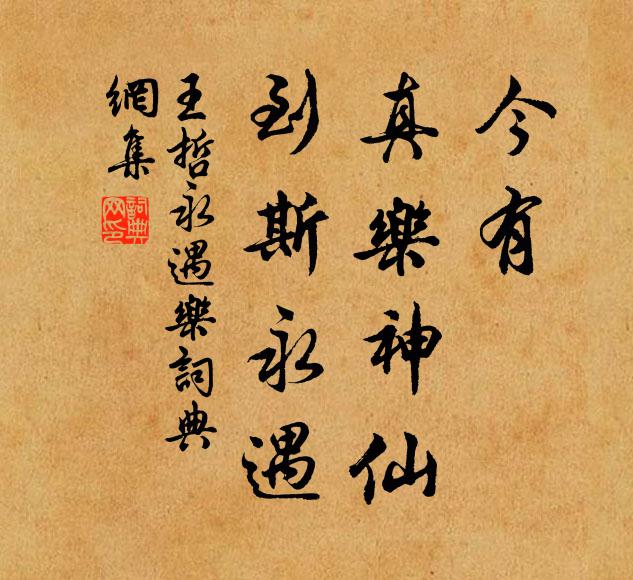 今有
真樂神仙
到斯永遇
王哲永遇樂詞典
網集
詞典
网印